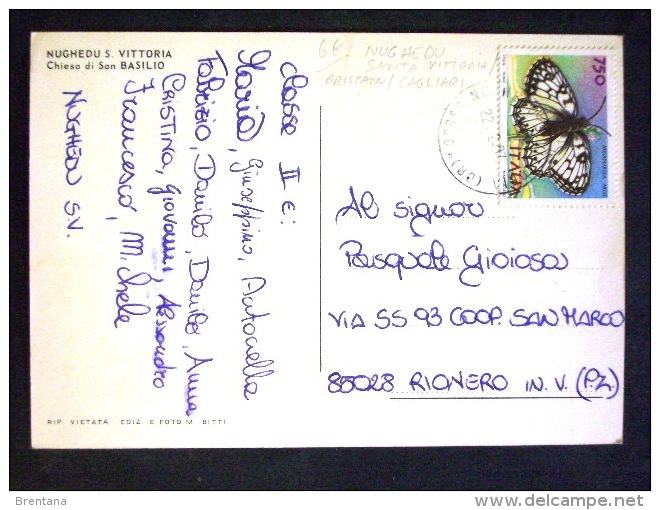 NUGHEDU S. VITTORIA
Chiesa di San BASILIO
6€ NUGHEDU
SANTA VITTORIA/
ORISTANO/CAGLIARI
750
ITALIA
classe II e:
Maria, Giuseppina, Antonella
Fabrizio, Danilo, Danilo, Anna
CRISTINA, Giovanni, Alessandro
Francesco, Michele
NUGHEDU SV.
Al signor
Pasquale Gioiosa
VIA SS 93 COOP. SAN MARCO
85028 RIONERO IN V. (PZ)
RIP. VIETATA EDIZ. E FOTO M. BITTI
Brentana
delcampe.net